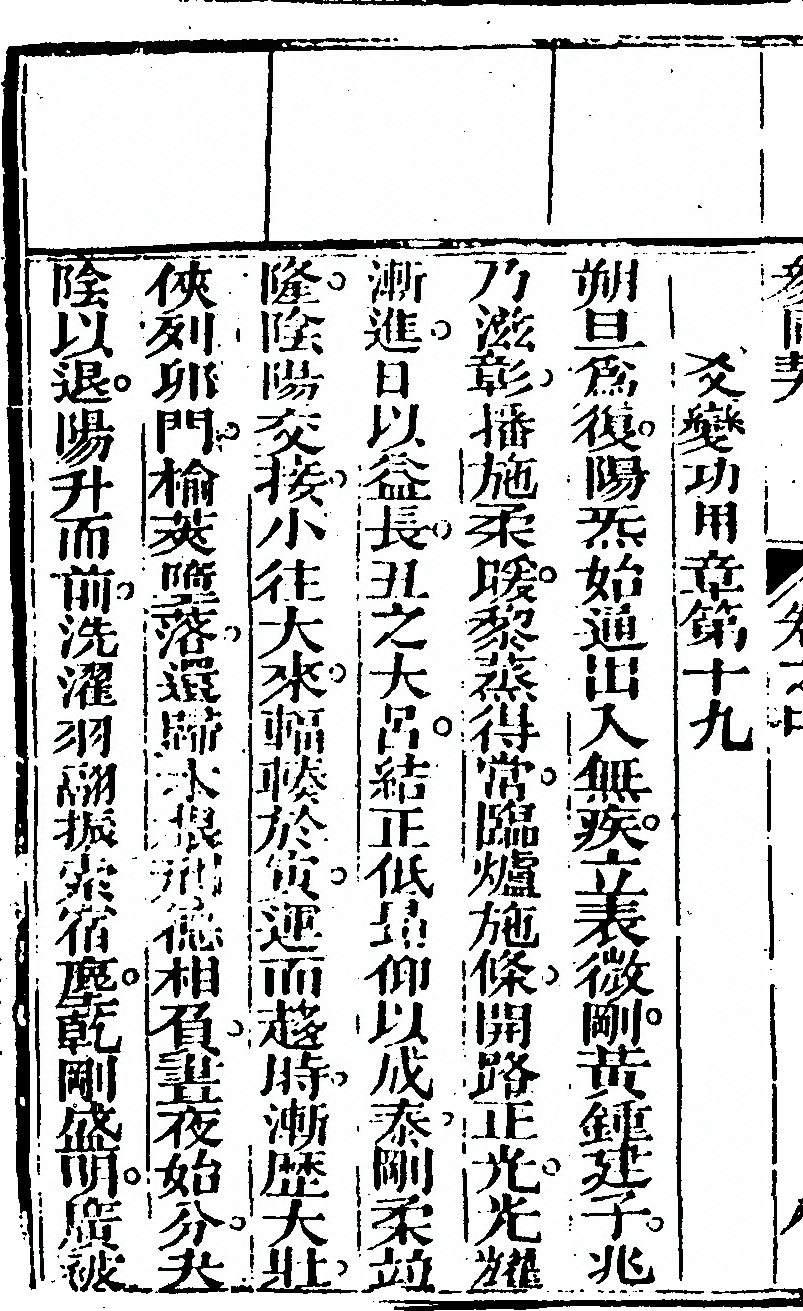 參同契 卷之中
爻變功用章第十九
朔旦爲復。陽炁始通出入無疾。立表微剛。黃鍾建子。兆
乃滋彰。播施柔暖。黎蒸得常。臨爐施條。開路正光。光耀
漸進。日以益長。丑之大呂。結正低昂仰以成泰。剛柔竝
隆。陰陽交接。小往大來。輻輳於寅。運而趨時。漸歷大壯。
俠列卯門。榆莢墮落。還歸本根刑德相負。晝夜始分。夬
陰以退。陽升而前。洗濯羽翮振索宿塵。乾剛盛明。廣被